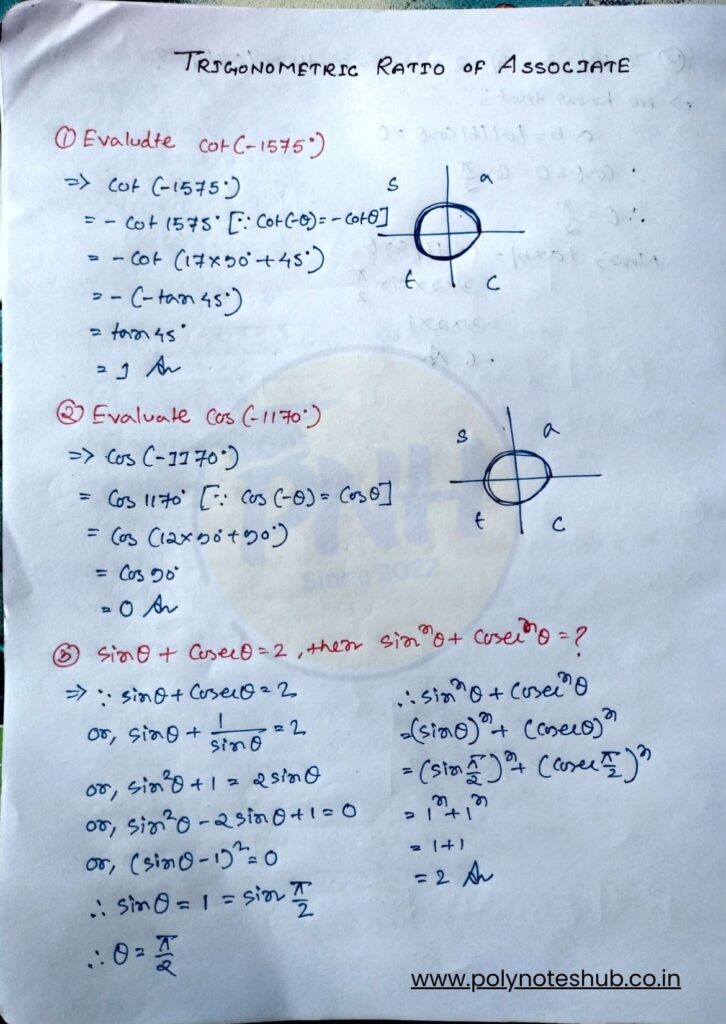 TRIGONOMETRIC RATIO OF ASSOCIATE
① Evaluate cot(-1575°)
=> cot (-1575°)
= - cot 1575° [∵ cot(-θ) = - cotθ]
= - cot (17×90° + 45°)
= - (- tan 45°)
= tan 45°
= 1 An
s a
t c
② Evaluate cos (-1170°)
=> cos (-1170°)
= cos 1170° [∵ cos (-θ) = cosθ]
= cos (12×90° + 90°)
= cos 90°
= 0 An
s a
t c
PNH
since 2022
③ sinθ + cosecθ = 2, then sinⁿθ + cosecⁿθ = ?
=> ∵ sinθ + cosecθ = 2
or, sinθ + 1/sinθ = 2
or, sin²θ + 1 = 2 sinθ
or, sin²θ - 2 sinθ + 1 = 0
or, (sinθ - 1)² = 0
∴ sinθ = 1 = sin π/2
∴ θ = π/2
∴ sinⁿθ + cosecⁿθ
= (sinθ)ⁿ + (cosecθ)ⁿ
= (sin π/2)ⁿ + (cosec π/2)ⁿ
= 1ⁿ + 1ⁿ
= 1 + 1
= 2 An
www.polynoteshub.co.in